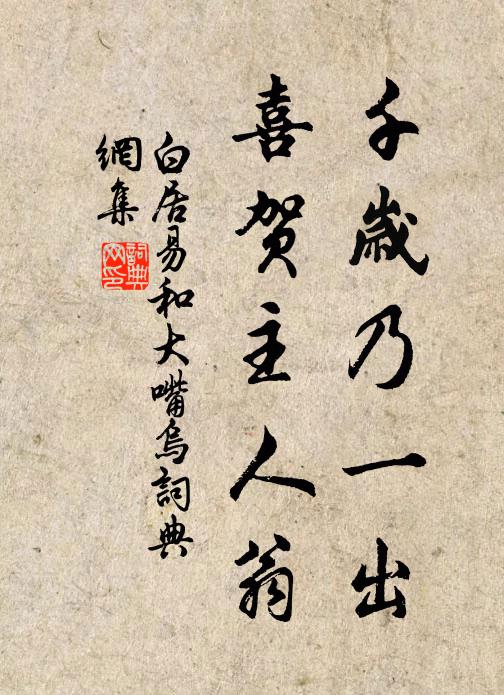 千歲乃一出
喜賀主人翁
白居易和大嘴烏詞典
網集
詞典
网印